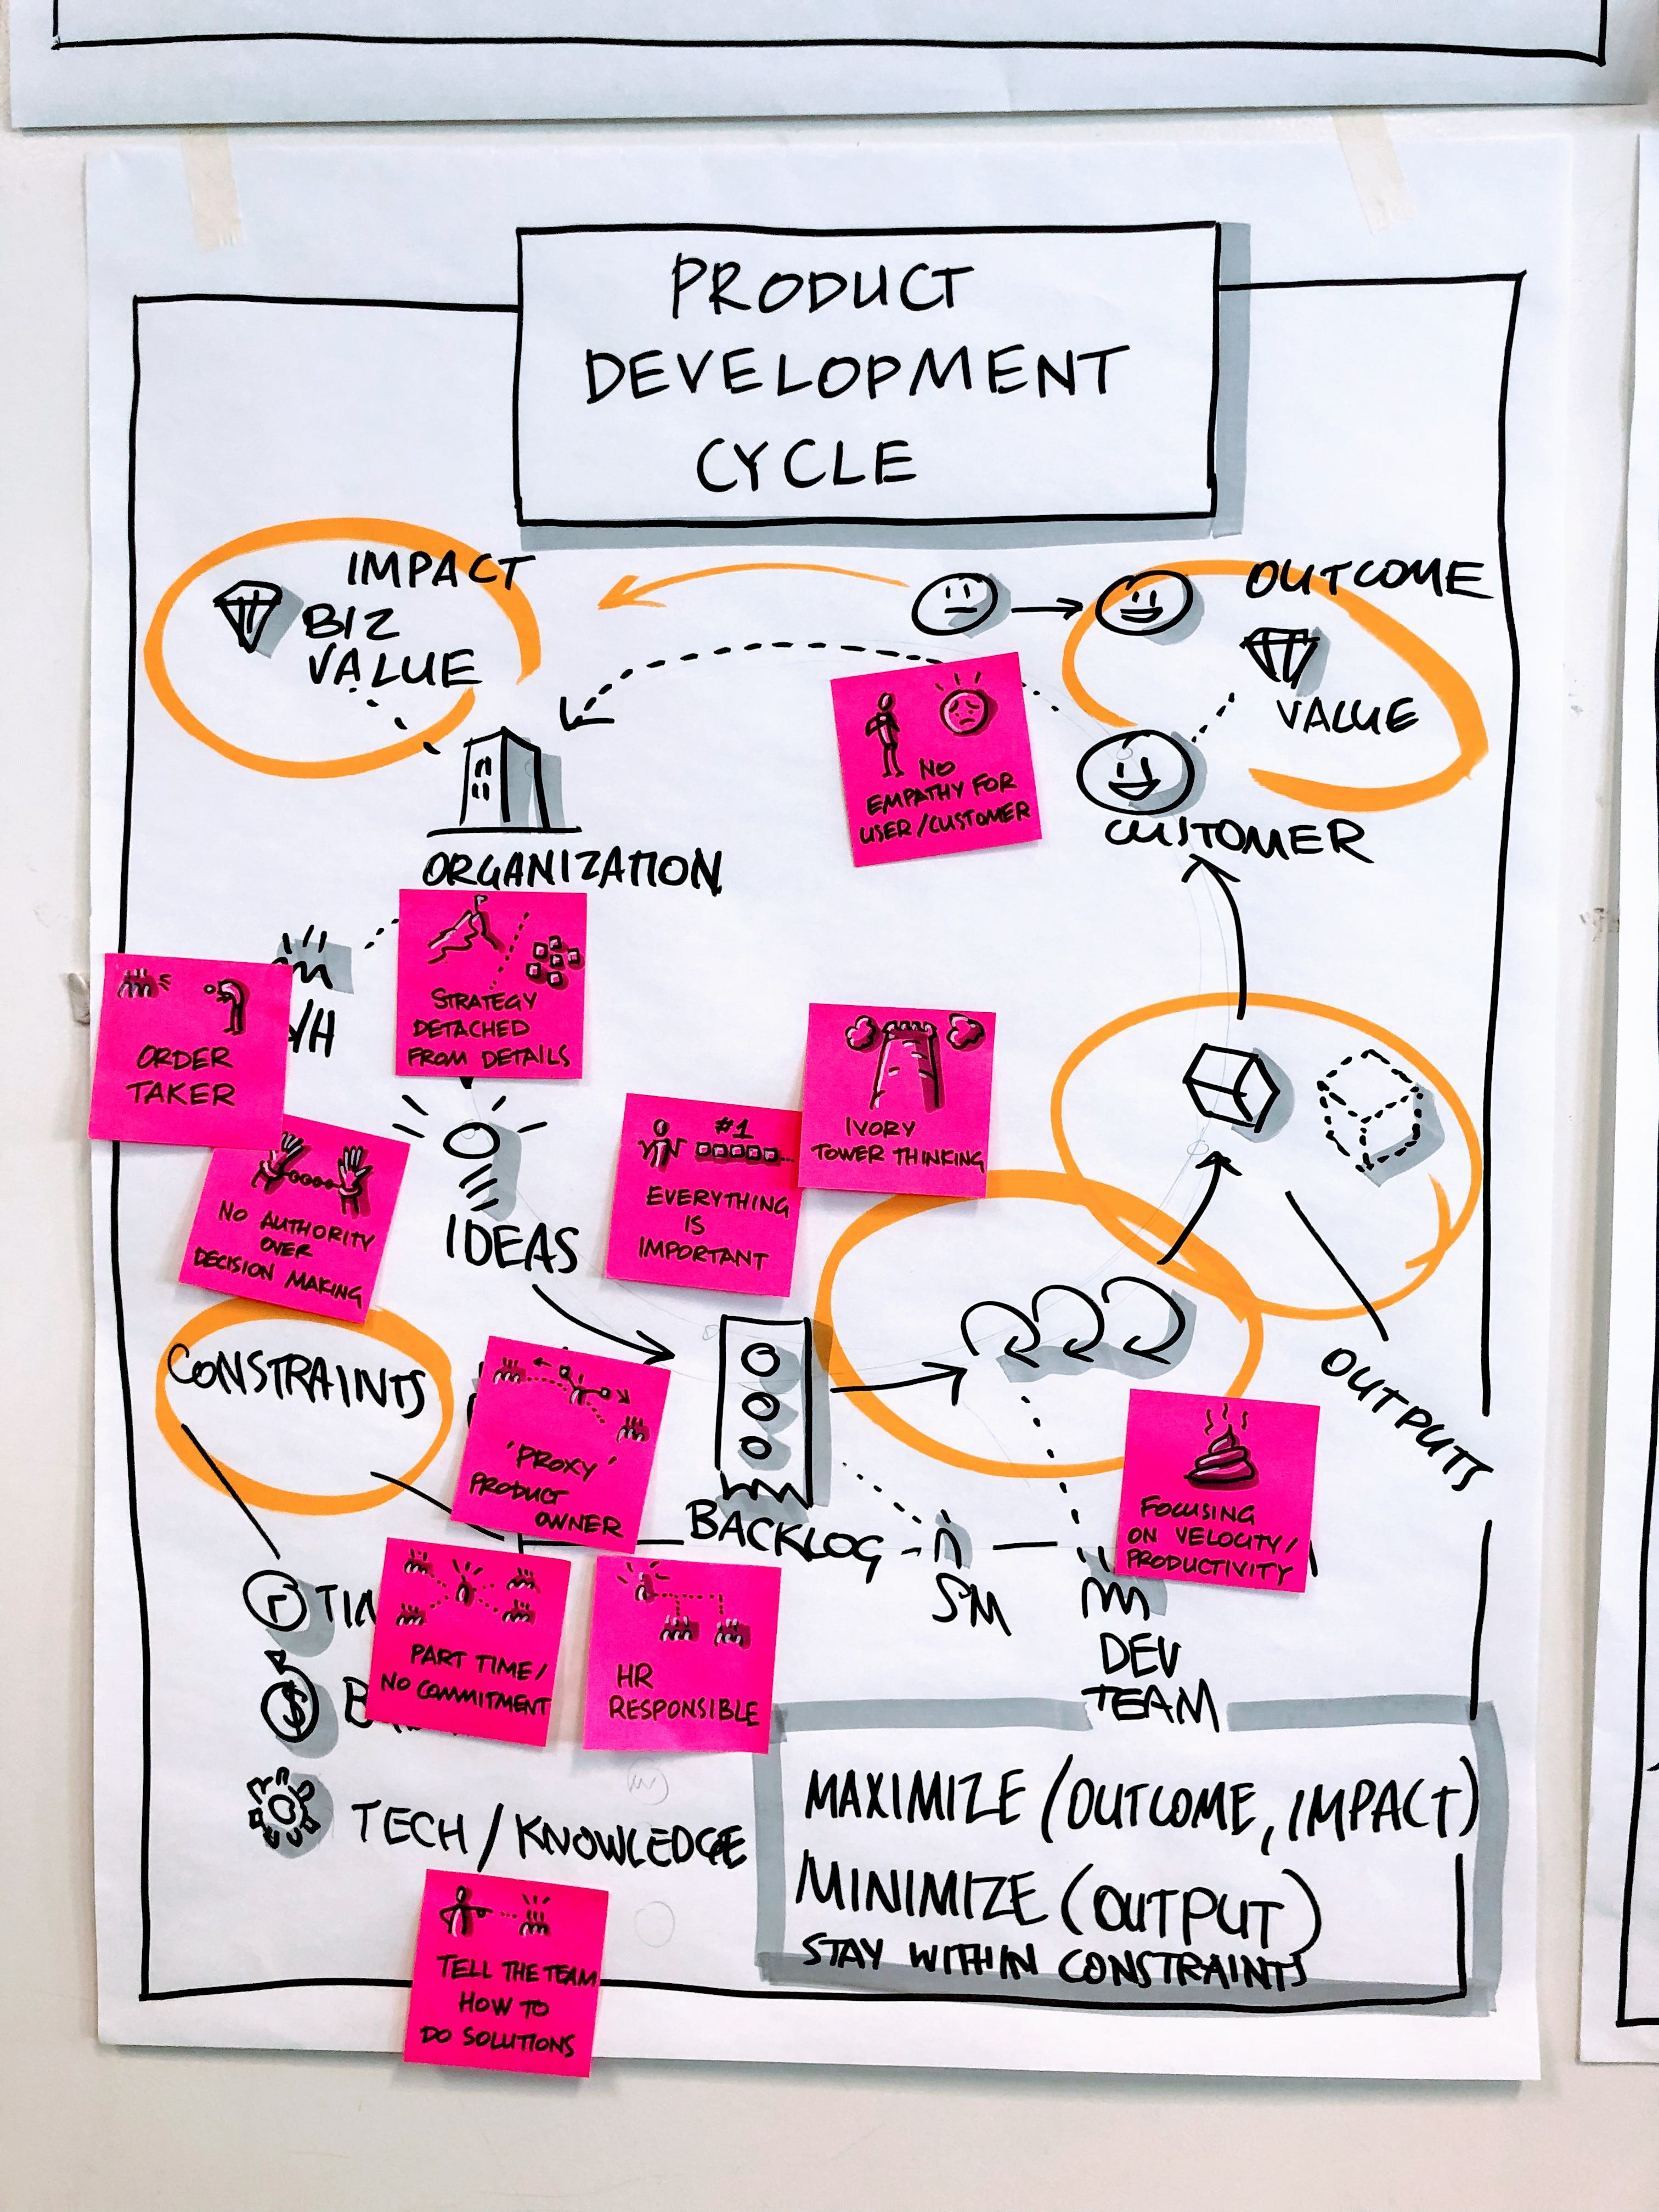 PRODUCT
DEVELOPMENT
CYCLE
IMPACT
BIZ
VALUE
OUTCOME
VALUE
NO
EMPATHY FOR
USER/CUSTOMER
CUSTOMER
ORGANIZATION
STRATEGY
DETACHED
FROM DETAILS
/H
ORDER
TAKER
IVORY
TOWER THINKING
#1
EVERYTHING
IS
IMPORTANT
NO AUTHORITY
OVER
DECISION MAKING
IDEAS
CONSTRAINTS
OUTPUTS
'PROXY'
PRODUCT
OWNER
BACKLOG
FOCUSING
ON VELOCITY/
PRODUCTIVITY
SM
DEV
TEAM
PART TIME/
NO COMMITMENT
HR
RESPONSIBLE
$
TECH/KNOWLEDGE
MAXIMIZE (OUTCOME, IMPACT)
MINIMIZE (OUTPUT)
STAY WITHIN CONSTRAINTS
TELL THE TEAM
HOW TO
DO SOLUTIONS